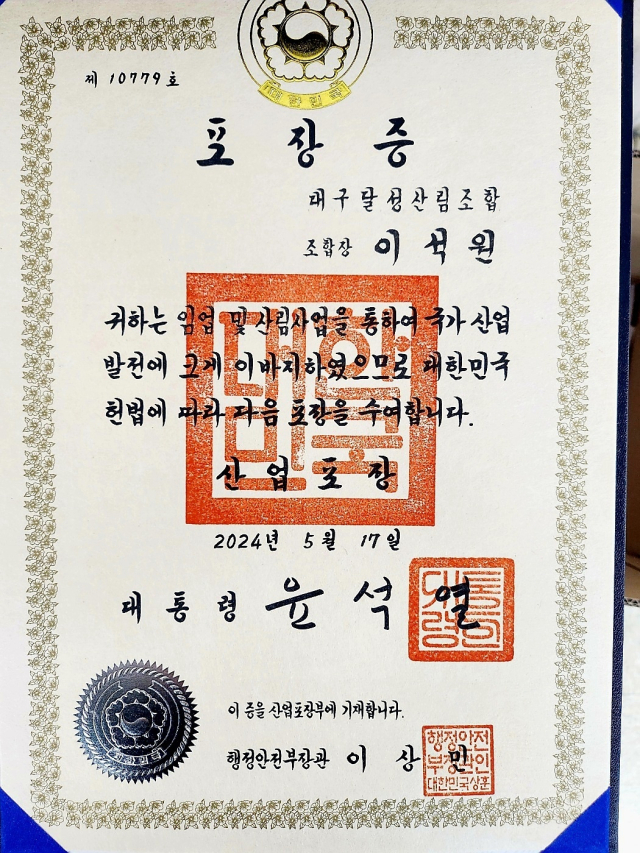 대한민국
제 10779 호
포장증
대구달성산림조합
조합장 이석원
귀하는 임업 및 산림사업을 통하여 국가 산업
발전에 크게 이바지하였으므로 대한민국
헌법에 따라 다음 포장을 수여합니다.
대한민국
산업포장
2024년 5월 17일
대통령 윤석열
대통령의인
이 증을 산업포장부에 기재합니다.
행정안전부장관 이상민
행정안전
부장관인
대한민국상훈